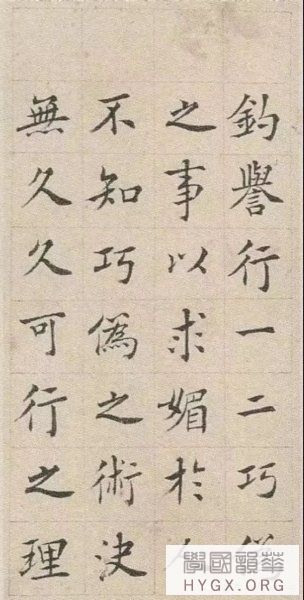 釣譽行一二巧
之事以求媚於
不知巧偽之術決
無久久可行之理
學國韻華
HYGX.ORG